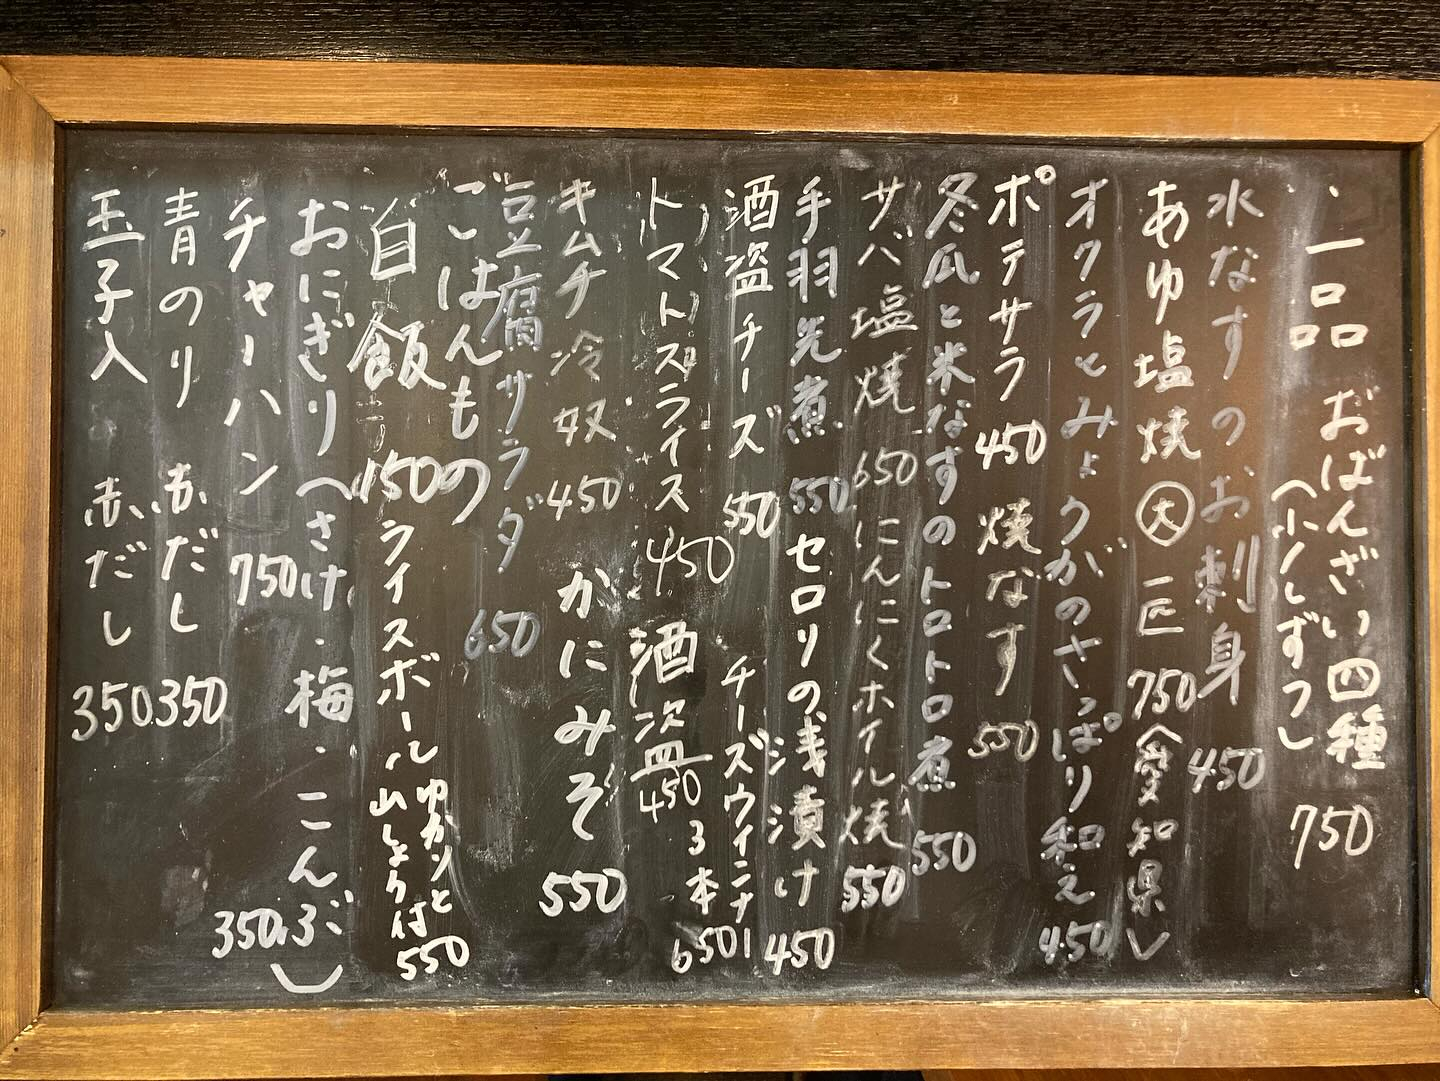 一品 おばんざい四種 750
(少しずつ)
水なすのお刺身 450
あゆ塩焼 大 一匹 750(愛知県)
オクラとみょうがのさっぱり和え 450
ポテサラ 450 焼なす 550
冬瓜と米なすのトロトロ煮 550
サバ塩焼 650 にんにくホイル焼 550
手羽先煮 550 セロリの浅漬け 450
酒盗チーズ 550 チーズウインナー 3本 650
トマトスライス 450 酒盗 450
キムチ冷奴 450 かにみそ 550
豆腐サラダ 650
ごはんもの
白飯 150 ライスボール ゆかりと山しょう付 550
おにぎり(さけ・梅・こんぶ) 350
チャーハン 750
青のり 赤だし 350
玉子入 赤だし 350